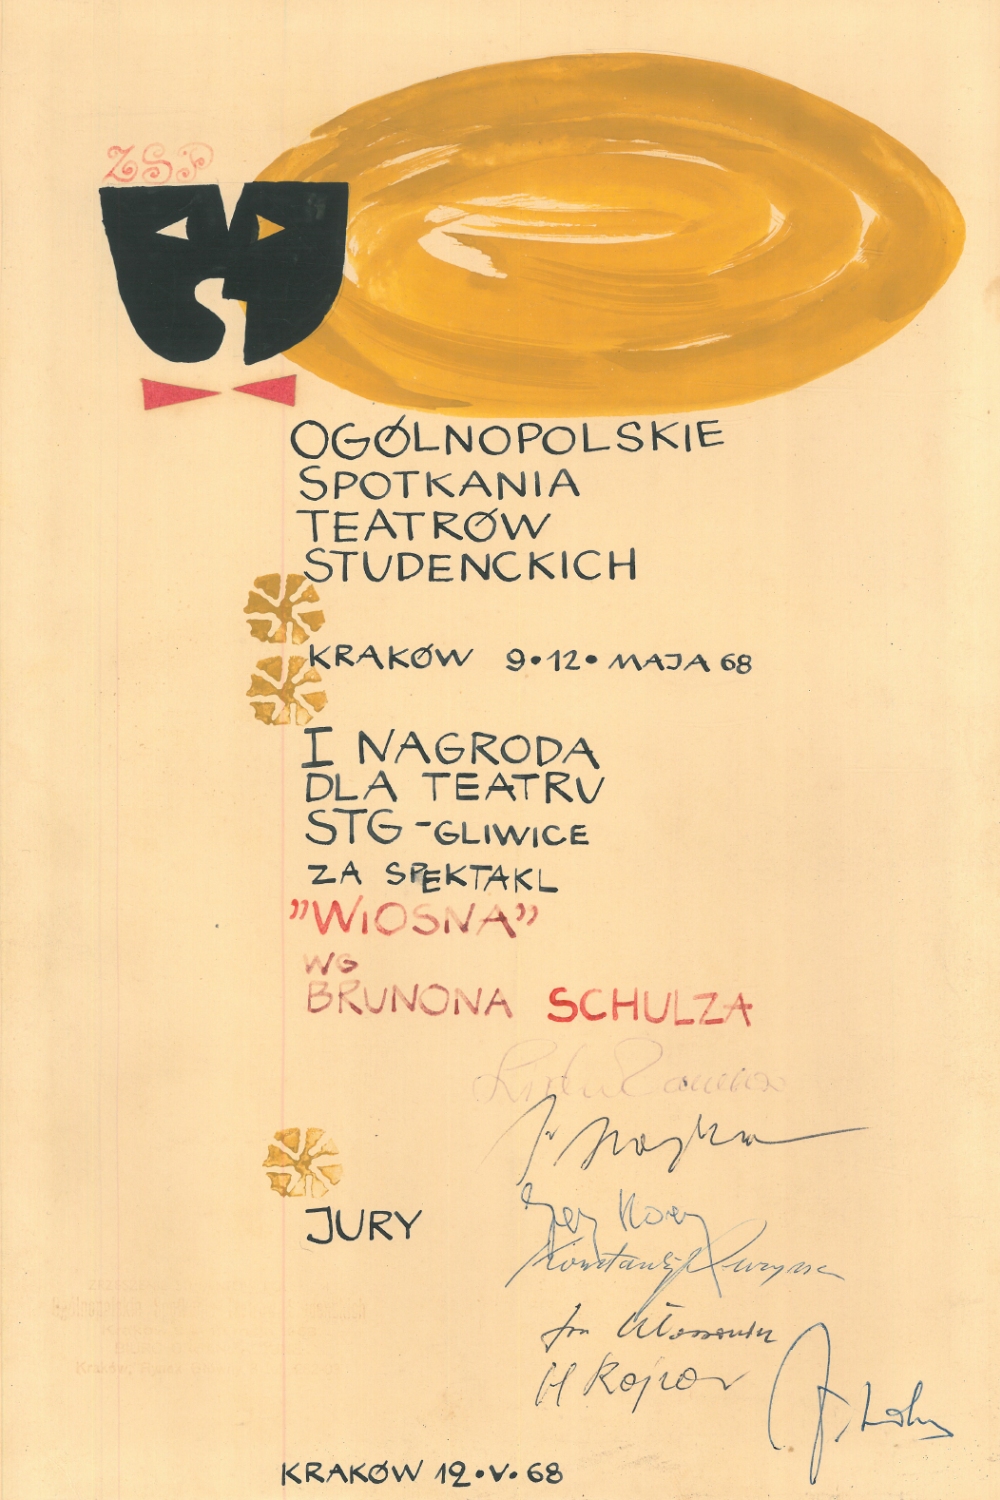 ZSP
OGÓLNOPOLSKIE
SPOTKANIA
TEATRÓW
STUDENCKICH
KRAKÓW 9•12• MAJA 68
I NAGRODA
DLA TEATRU
STG - GLIWICE
ZA SPEKTAKL
"WIOSNA"
WG
BRUNONA SCHULZA
JURY
Konstanty Puzyna
KRAKÓW 12•V•68